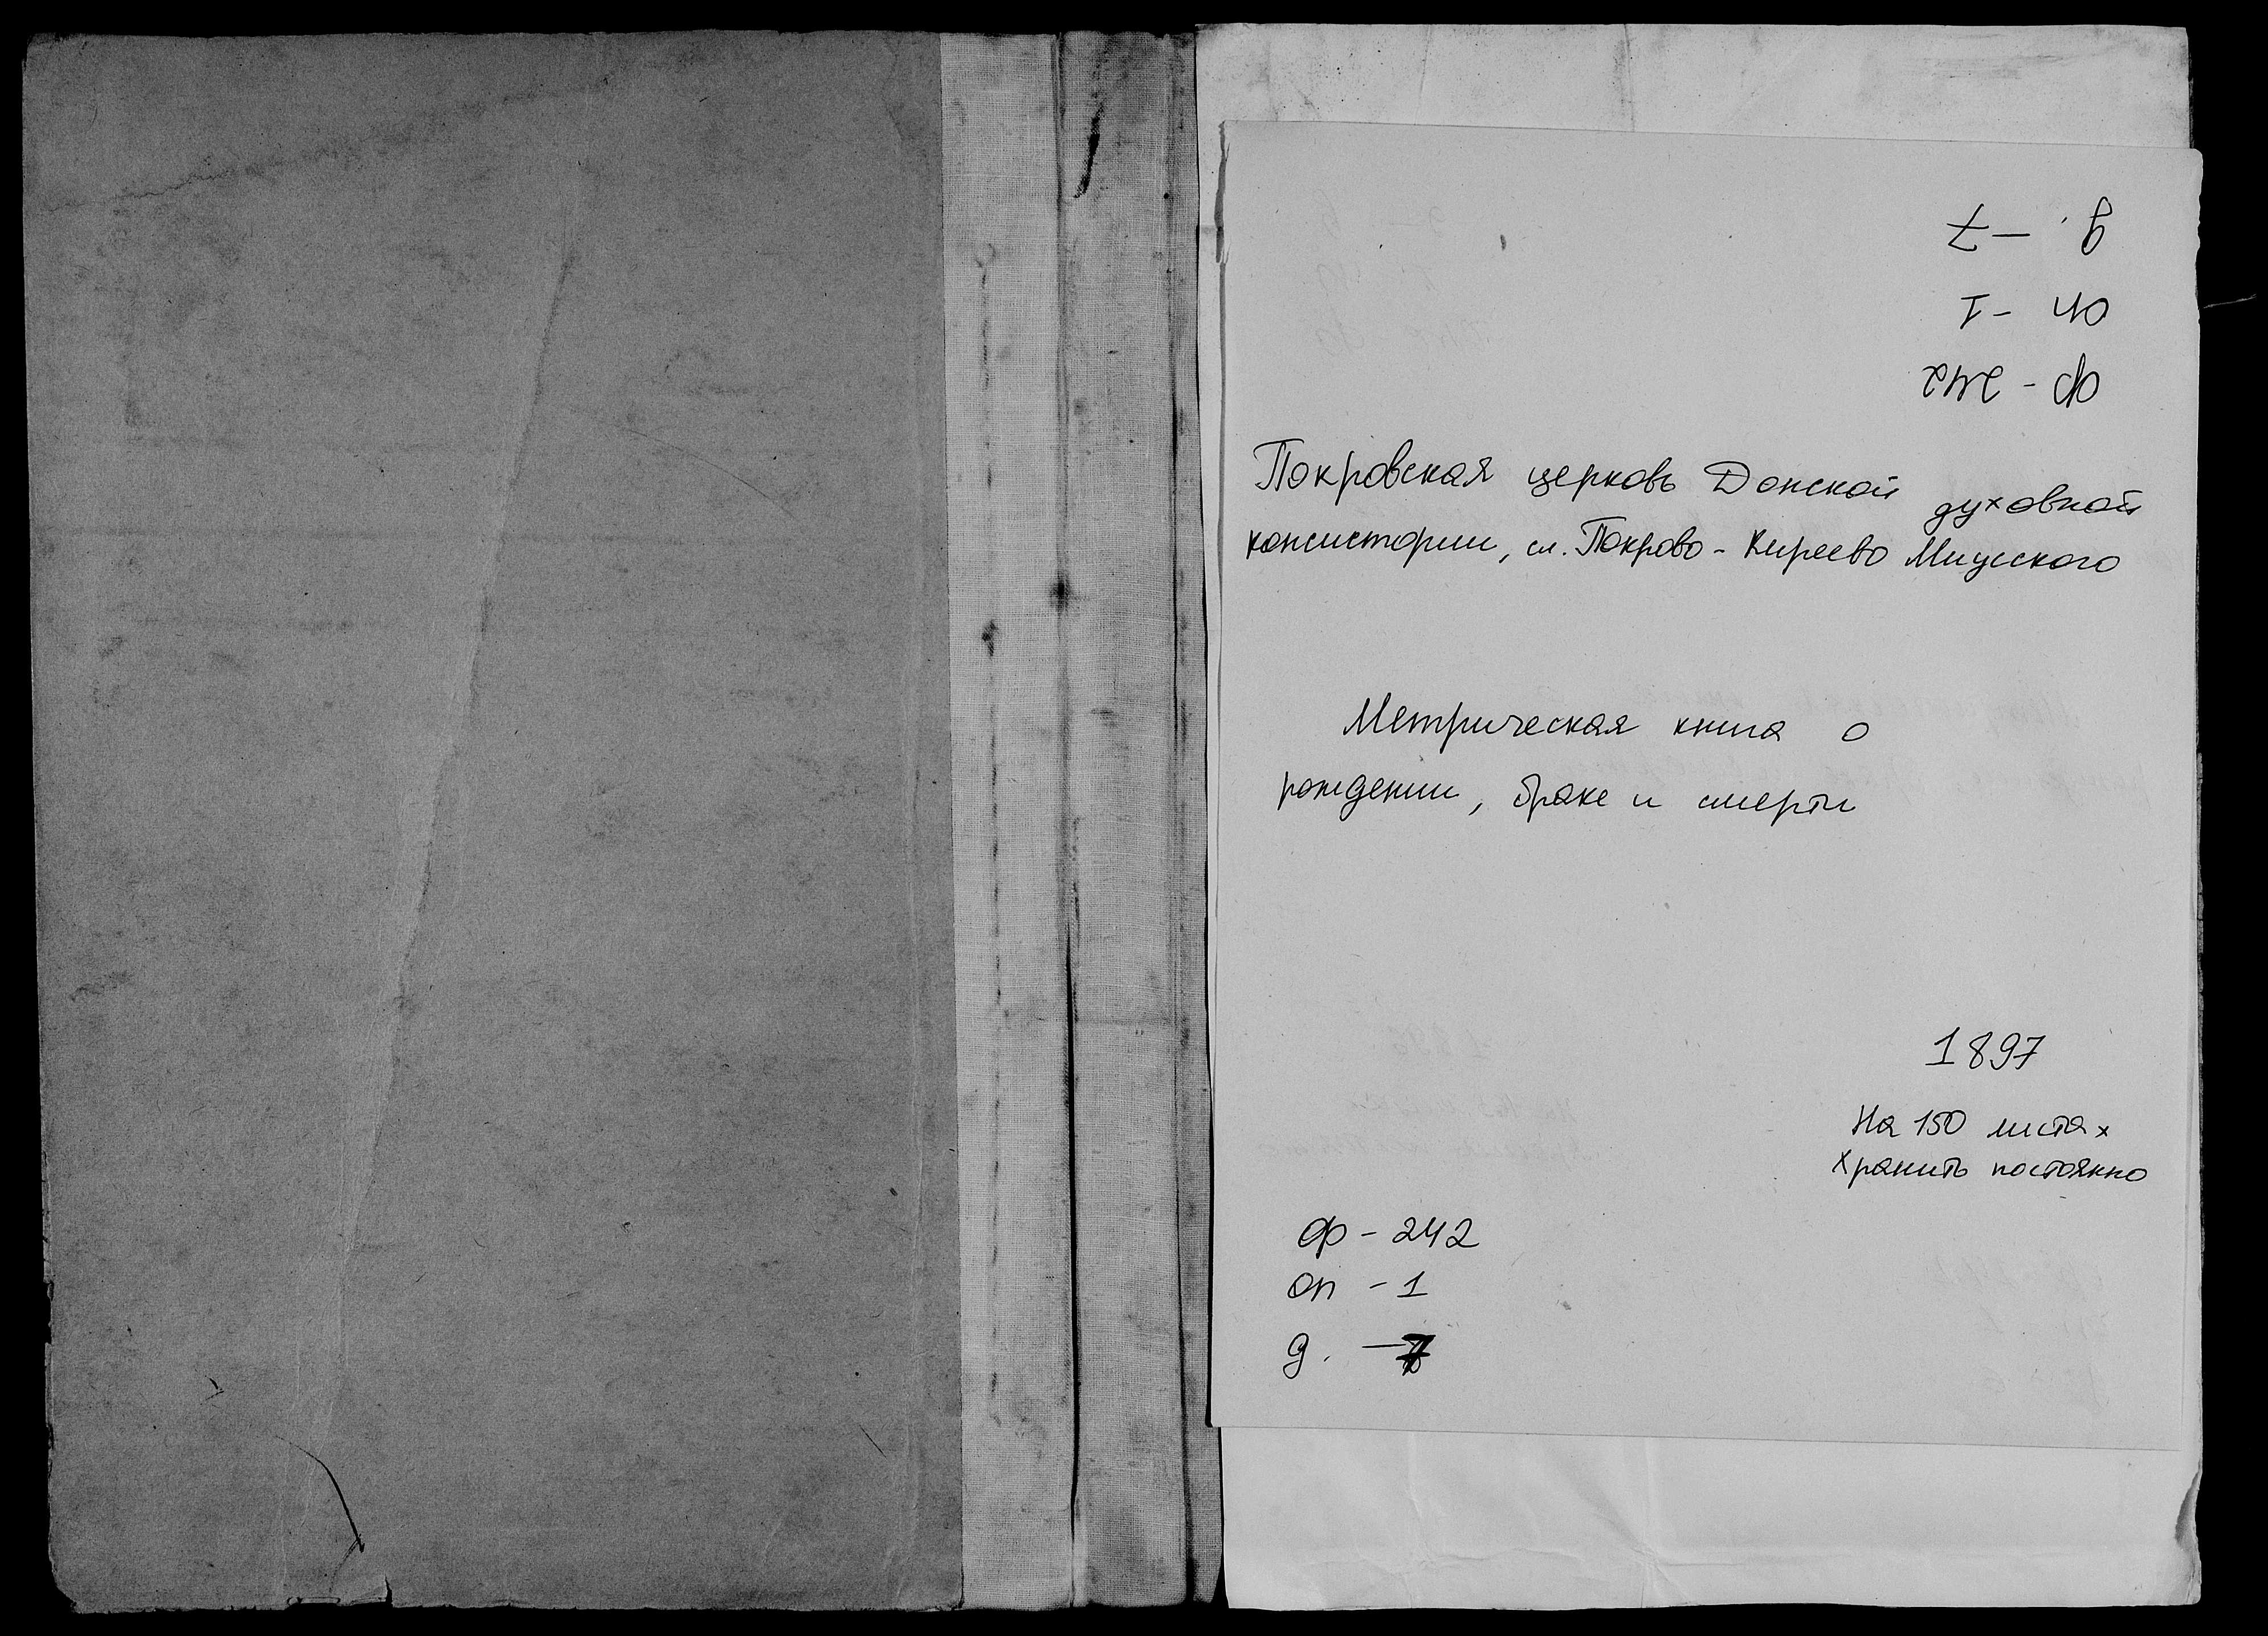 д. - 7
оп - 1
ф - 242
Покровская церковь Донской духовной
консистории, сл. Покрово - Киреево Миусского
Метрическая книга о
рождении, браке и смерти
1897
На 150 листах
Хранить постоянно
ф - 242
оп - 1
д. - 7